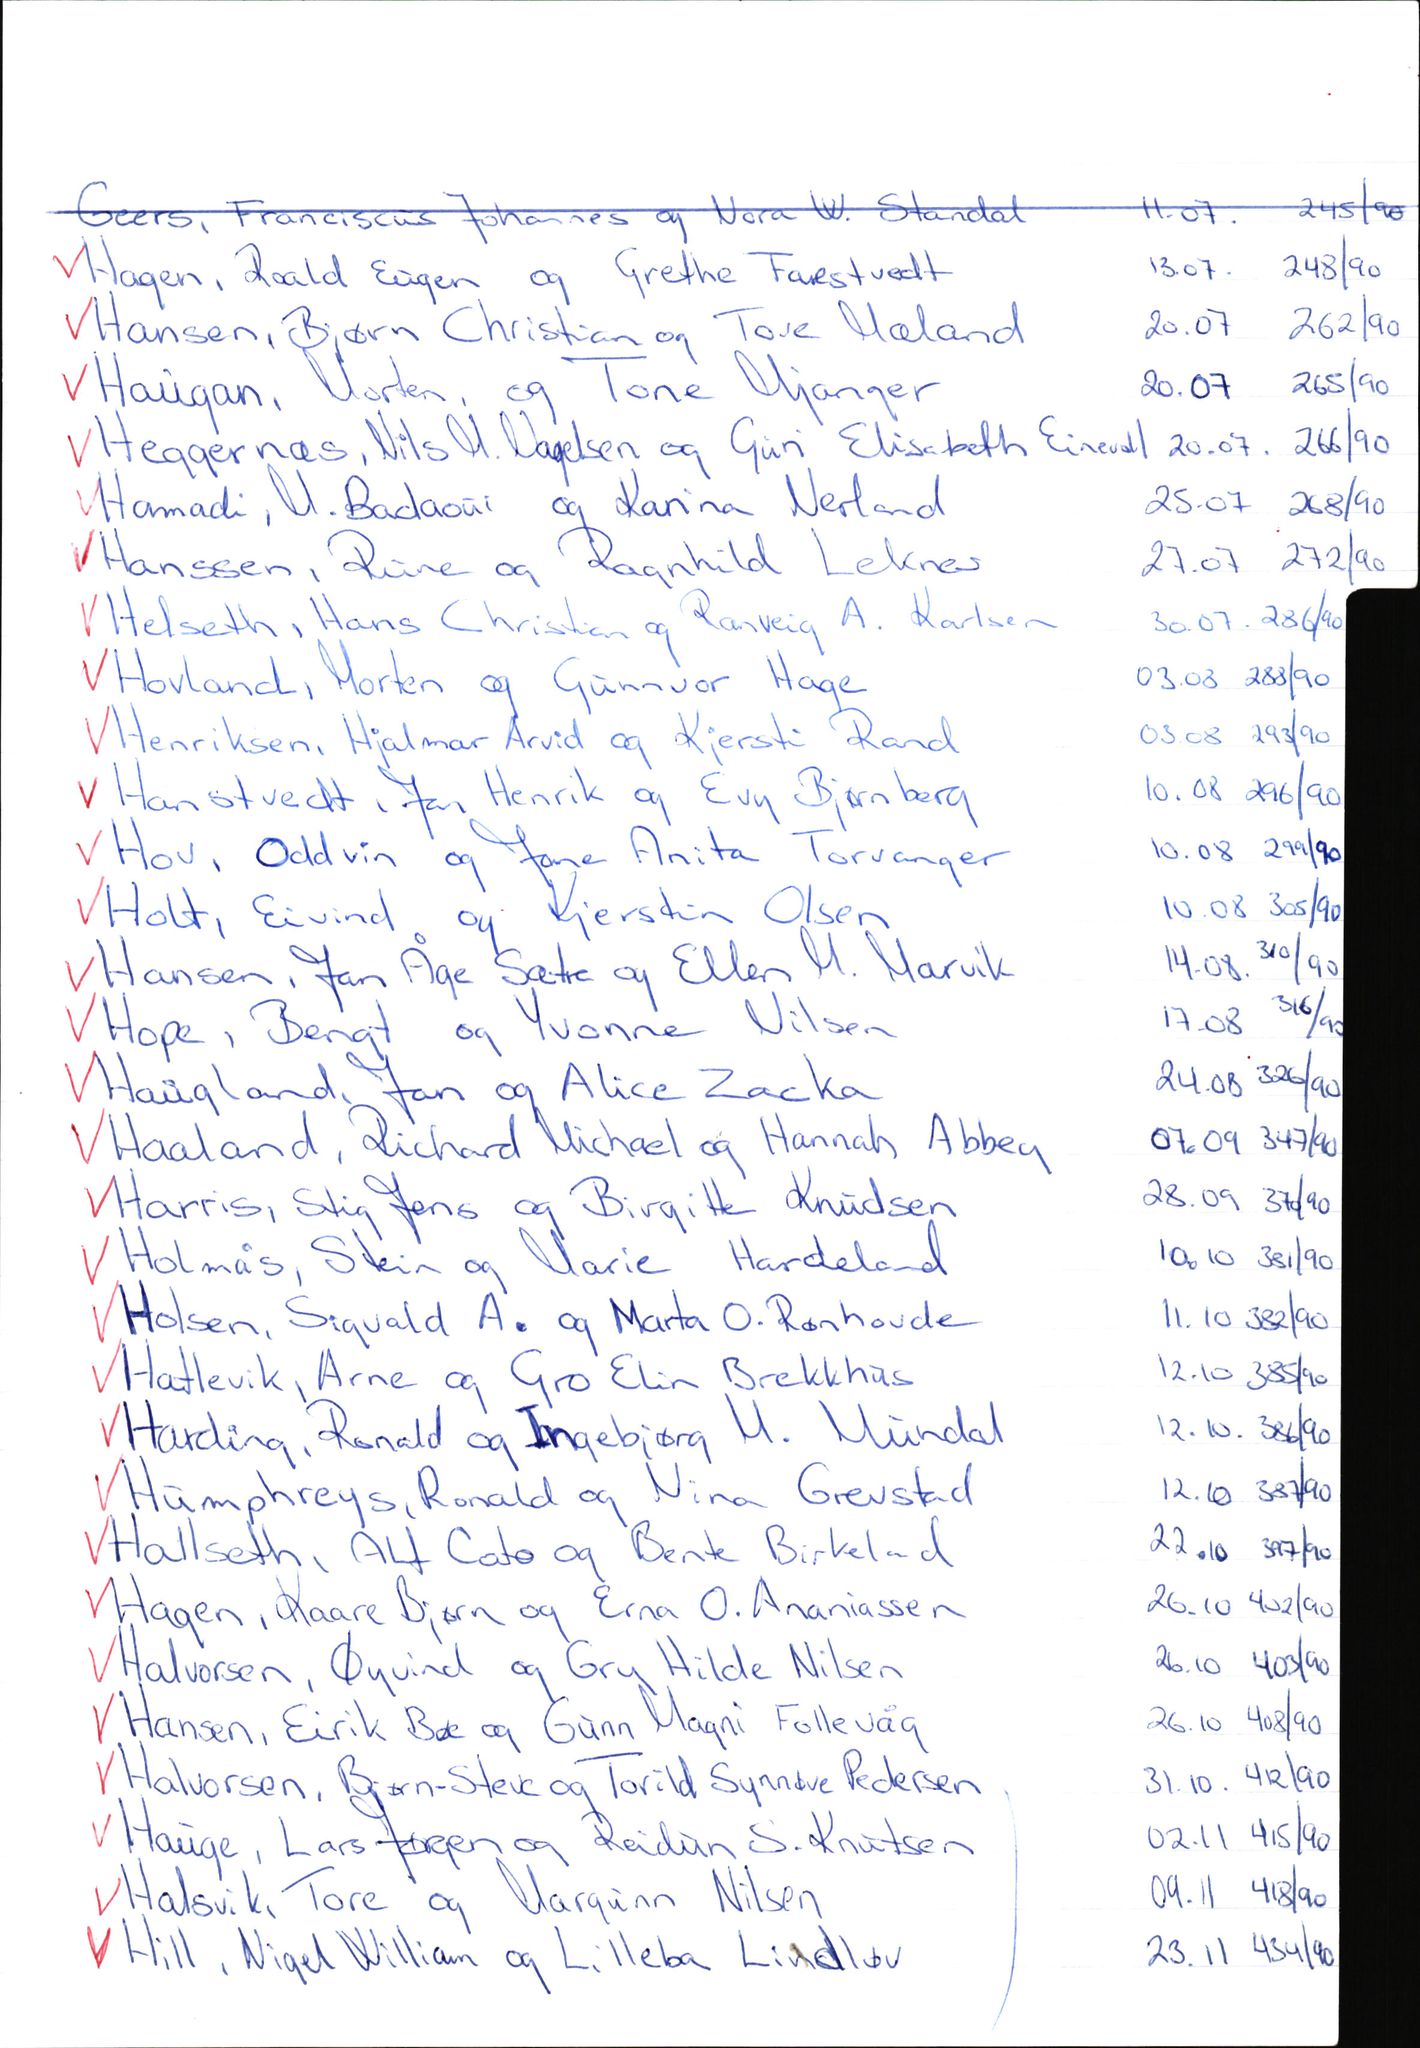 Geers, Franciscus Johannes og Nora W. Standal 11.07. 245/90
Hagen, Roald Eugen og Grethe Farestvedt 13.07. 248/90
Hansen, Bjørn Christian og Tove Mæland 20.07 262/90
Haugan, Morten, og Tone Mjanger 20.07 265/90
Heggernæs, Nils M. Magelsen og Guri Elisabeth Einevoll 20.07. 266/90
Hamadi, M. Badaoui og Karina Nerland 25.07 268/90
Hanssen, Rune og Ragnhild Leknes 27.07 272/90
Helseth, Hans Christian og Ranveig A. Karlsen 30.07. 286/90
Hovland, Morten og Gunnvor Hage 03.08 288/90
Henriksen, Hjalmar Arvid og Kjersti Rand 03.08 293/90
Hanstvedt, Jan Henrik og Evy Bjørnberg 10.08 296/90
Hov, Oddvin og Jane Anita Torvanger 10.08 299/90
Holt, Eivind og Kjerstin Olsen 10.08 305/90
Hansen, Jan Åge Sætre og Ellen M. Marvik 14.08. 310/90
Hope, Bengt og Yvonne Nilsen 17.08 316/90
Haugland, Jan og Alice Zacka 24.08 326/90
Haaland, Richard Michael og Hannah Abbey 07.09 347/90
Harris, Stig Jens og Birgitte Knudsen 28.09
Holmås, Stein og Marie Hardeland 10.10 381/90
Holsen, Sigvald A. og Marta O. Rønhovde 11.10 382/90
Hatlevik, Arne og Gro Elin Brekkhus 12.10 385/90
Harding, Ronald og Ingebjørg M. Mundal 12.10. 386/90
Humphreys, Ronald og Nina Grevstad 12.10 387/90
Hallseth, Alf Cato og Bente Birkeland 22.10 397/90
Hagen, Kaare Bjørn og Erna O. Ananiassen 26.10 402/90
Halvorsen, Øyvind og Gry Hilde Nilsen 26.10 403/90
Hansen, Eirik Bøe og Gunn Magni Follevåg 26.10 408/90
Halvorsen, Bjørn-Steve og Torild Synnøve Pedersen 31.10. 412/90
Hauge, Lars Jørgen og Reidun S. Knutsen 02.11 415/90
Halsvik, Tore og Margunn Nilsen 09.11 418/90
Hill, Nigel William og Lilleba Lindløv 23.11 434/90